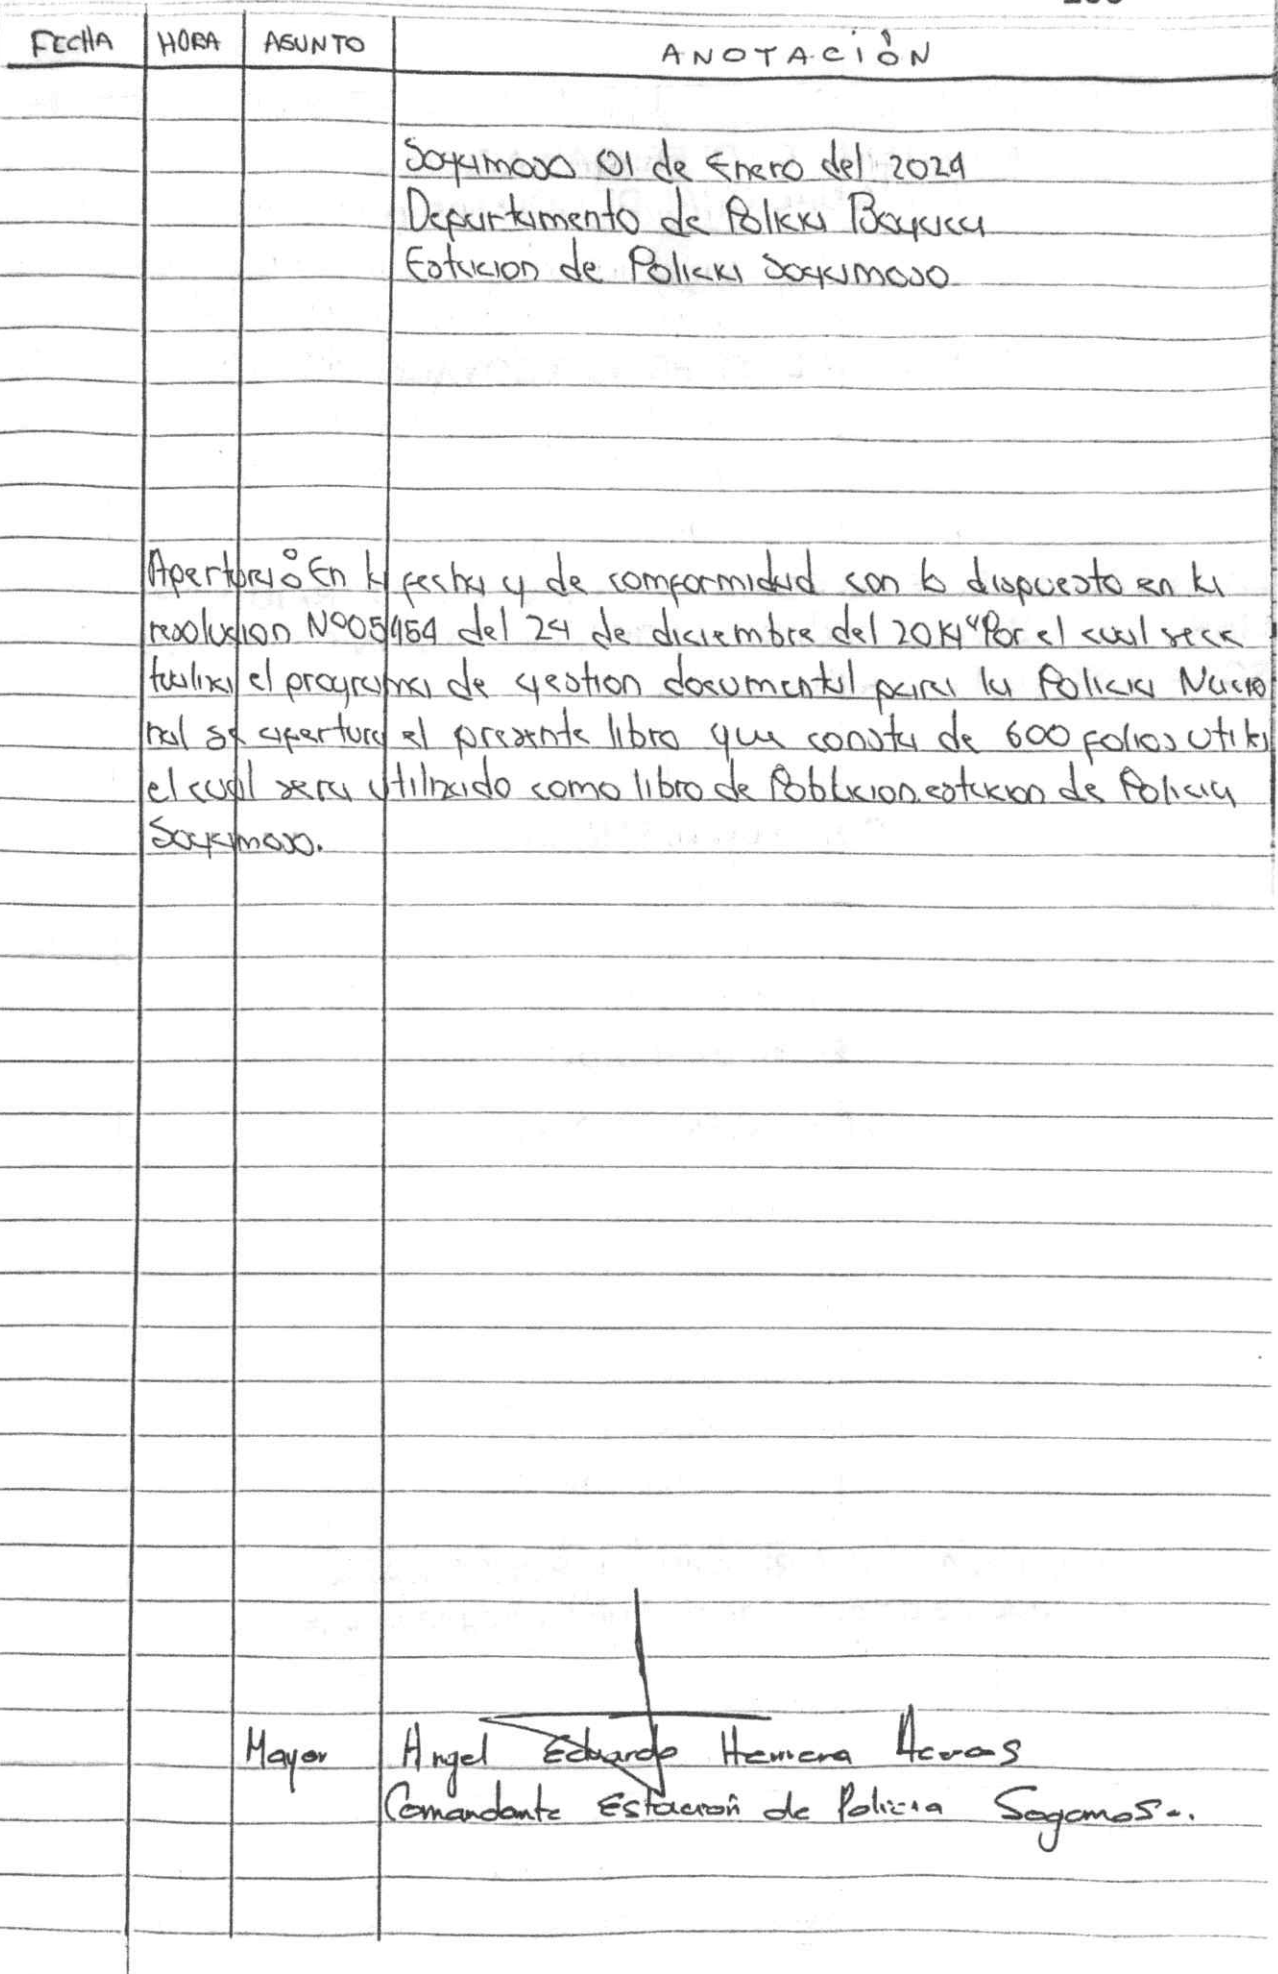 FECHA HORA ASUNTO ANOTACIÓN
Sogamoso 01 de Enero del 2024
Departamento de Policia Boyaca
Estacion de Policia Sogamoso
Apertura: En la fecha y de comformidad con lo dispuesto en la
resolusion Nº05464 del 24 de diciembre del 2014 "Por el cual se ac
tualiza el programa de gestion documental para la Policia Nacio
nal se apertura el presente libro que consta de 600 folios utiles
el cual sera utilizado como libro de Poblacion estacion de Policia
Sogamoso.
Mayor Angel Eduardo Herrera
Comandante Estación de Policia Sogamoso.